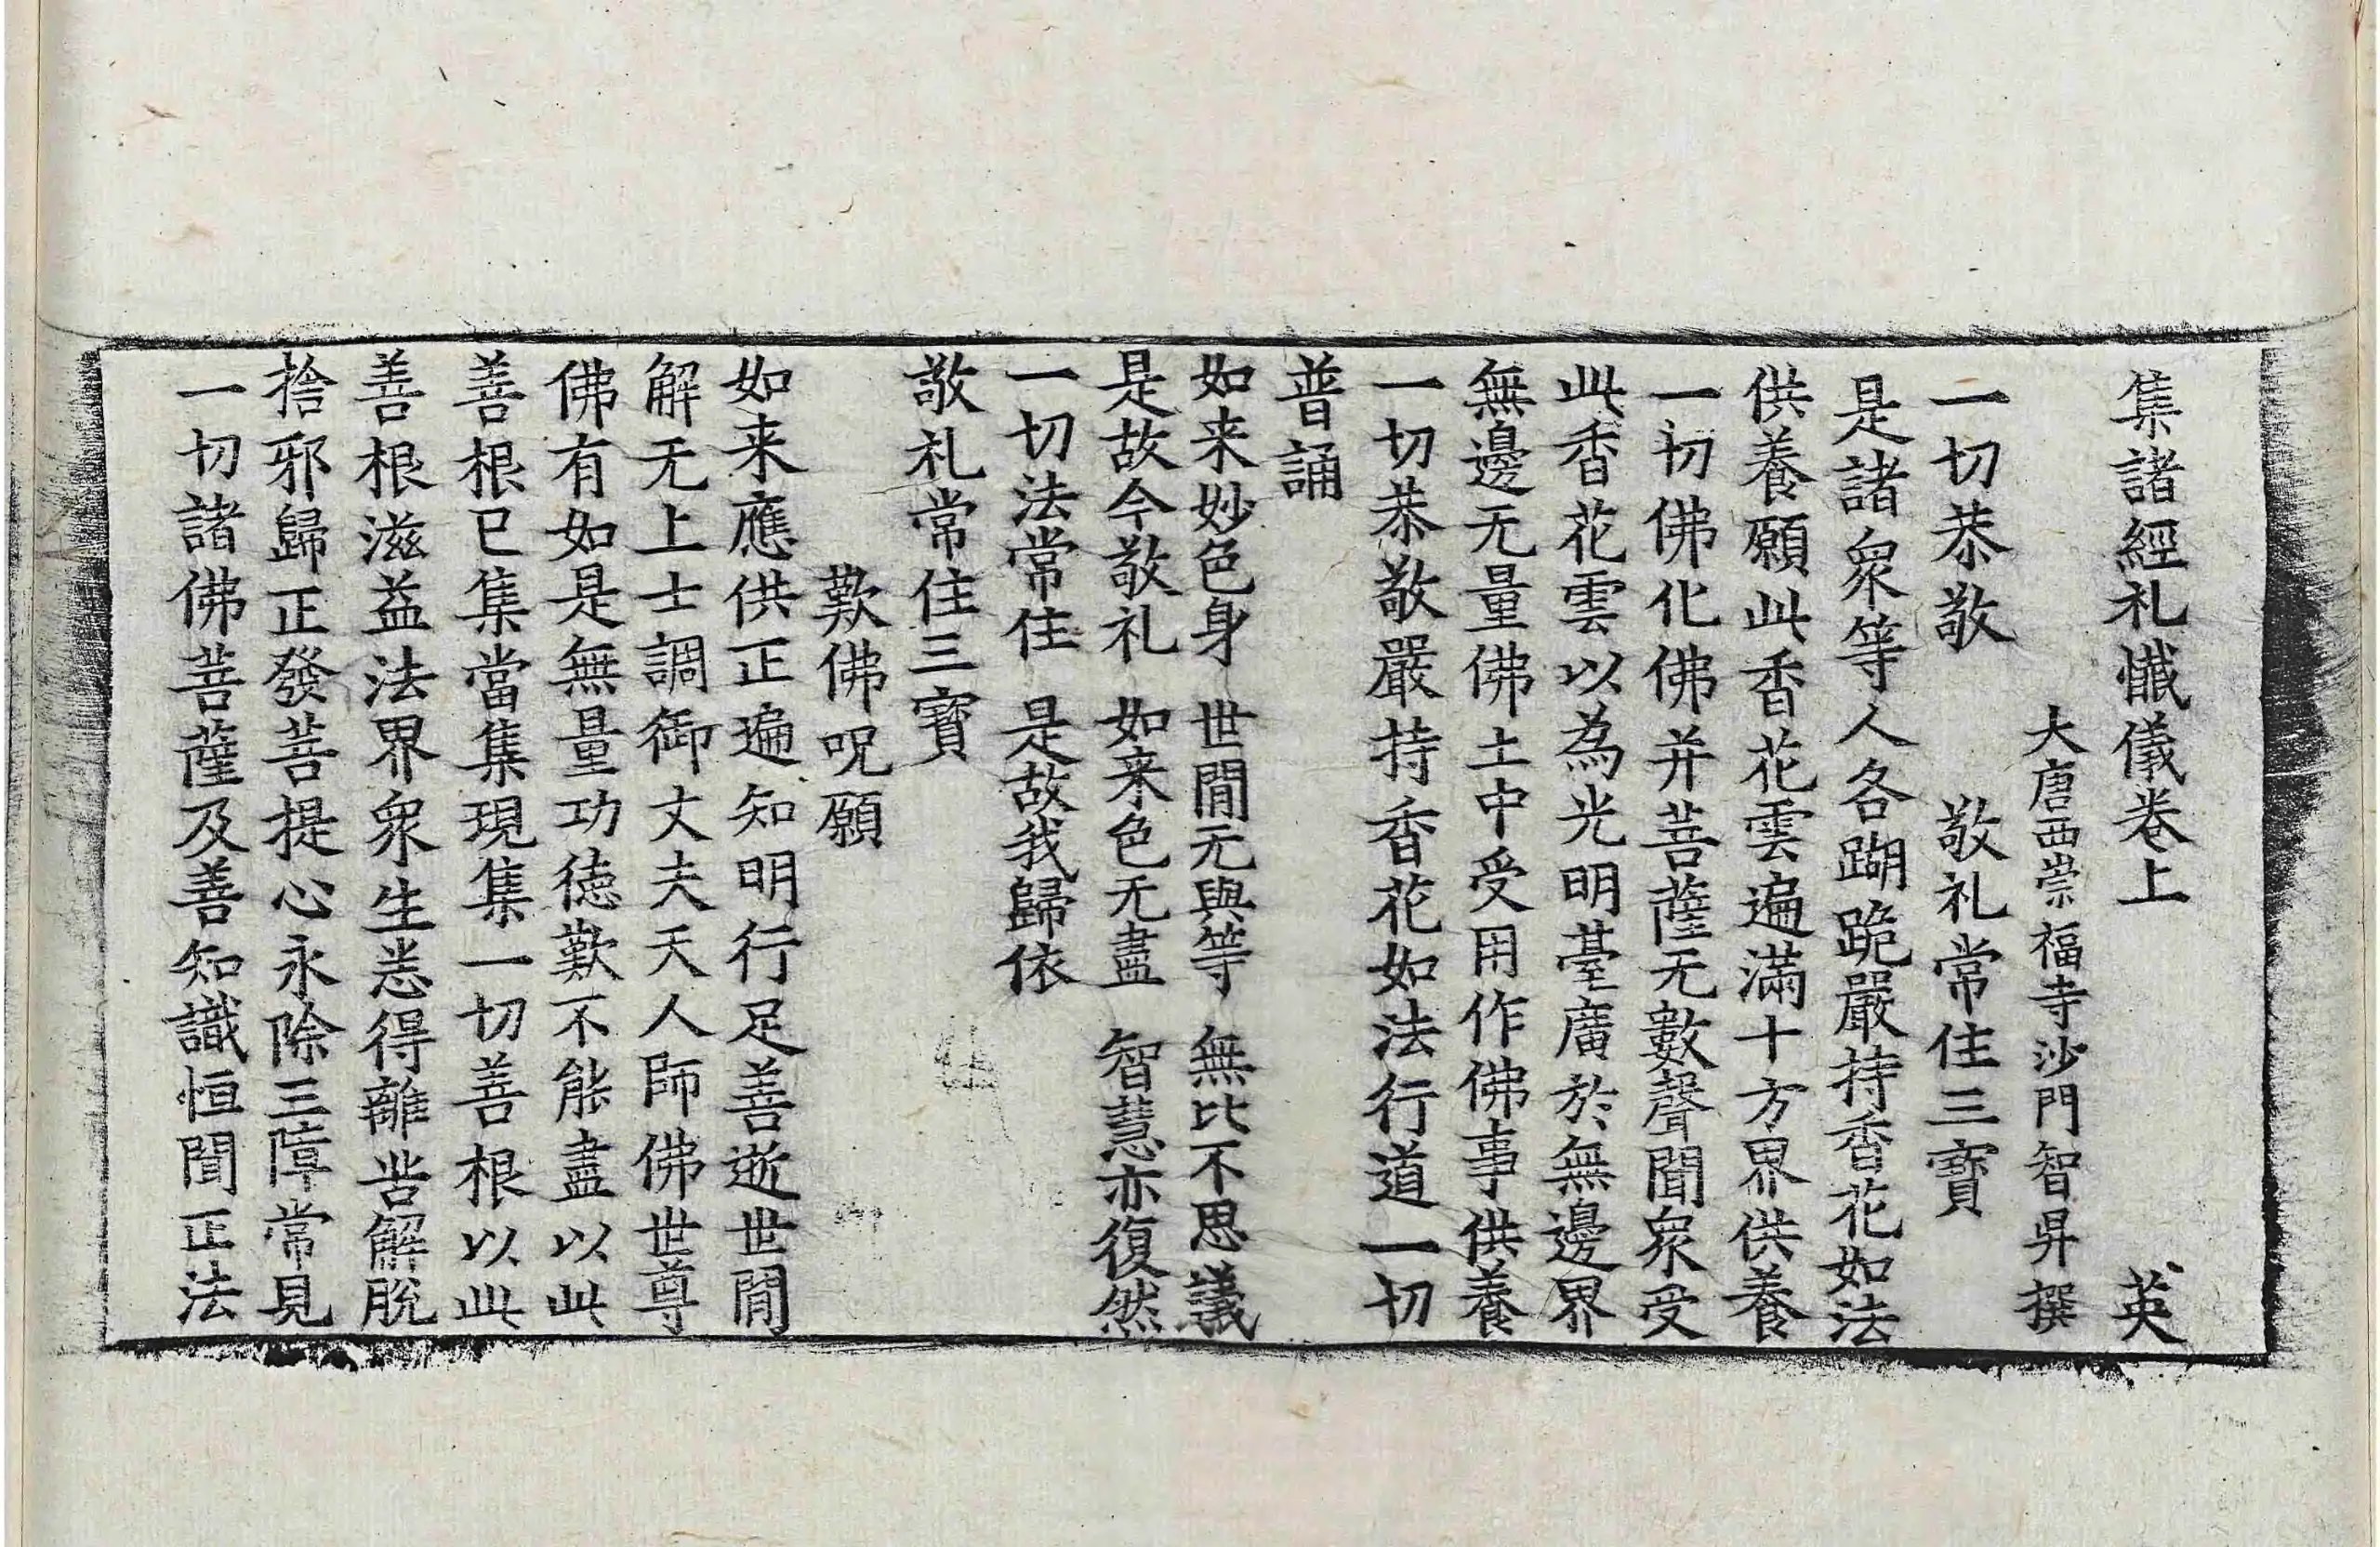 集諸經礼懺儀卷上　英
大唐西崇福寺沙門智昇撰
一切恭敬　敬礼常住三寶
是諸衆等人各䠒跪嚴持香花如法
供養願此香花雲遍滿十方界供養
一切佛化佛并菩薩无數聲聞衆受
此香花雲以為光明臺廣於無邊界
無邊无量佛土中受用作佛事供養
一切恭敬嚴持香花如法行道一切
普誦
如来妙色身　世間无與等　無比不思議
是故今敬礼　如来色无盡　智慧亦復然
一切法常住　是故我歸依
敬礼常住三寶
歎佛呪願
如来應供正遍知明行足善逝世間
解无上士調御丈夫天人師佛世尊
佛有如是無量功德歎不能盡以此
善根已集當集現集一切善根以此
善根滋益法界衆生悉得離苦解脫
捨邪歸正發菩提心永除三障常見
一切諸佛菩薩及善知識恒聞正法